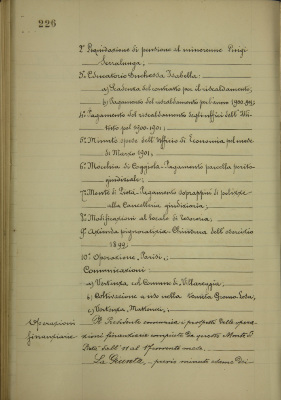 226
2° Liquidazione di pensione al minorenne Luigi
Serralunga;
3° Educatorio Duchessa Isabella:
a) Scadenza del contratto per il riscaldamento;
b) Pagamento del riscaldamento per l'anno 1900-99;
4° Pagamento del riscaldamento degli uffici dell'Isti-
tuto pel 1900-1901;
5° Minute spese dell'Ufficio di Economia pel mese
di Marzo 1901;
6° Moschia di Coggiola - Pagamento parcella perito
giudiziale;
7° Monte di Pietà - Pagamento di polizze
alla Cancelleria giudiziaria;
8° Modificazioni al locale di Tesoreria;
9° Azienda pignoratizia - Chiusura dell'esercizio
1899;
10° Operazione Parisi;
Comunicazioni:
a) Vertenza col Comune di Villareggia;
c) Vertenza
Operazioni
finanziarie
Il Presidente comunica i prospetti delle opera-
zioni finanziarie compiute da questo Monte di
Pietà dall'11 al 17 corrente mese.
La Giunta, previo minuto esame dei